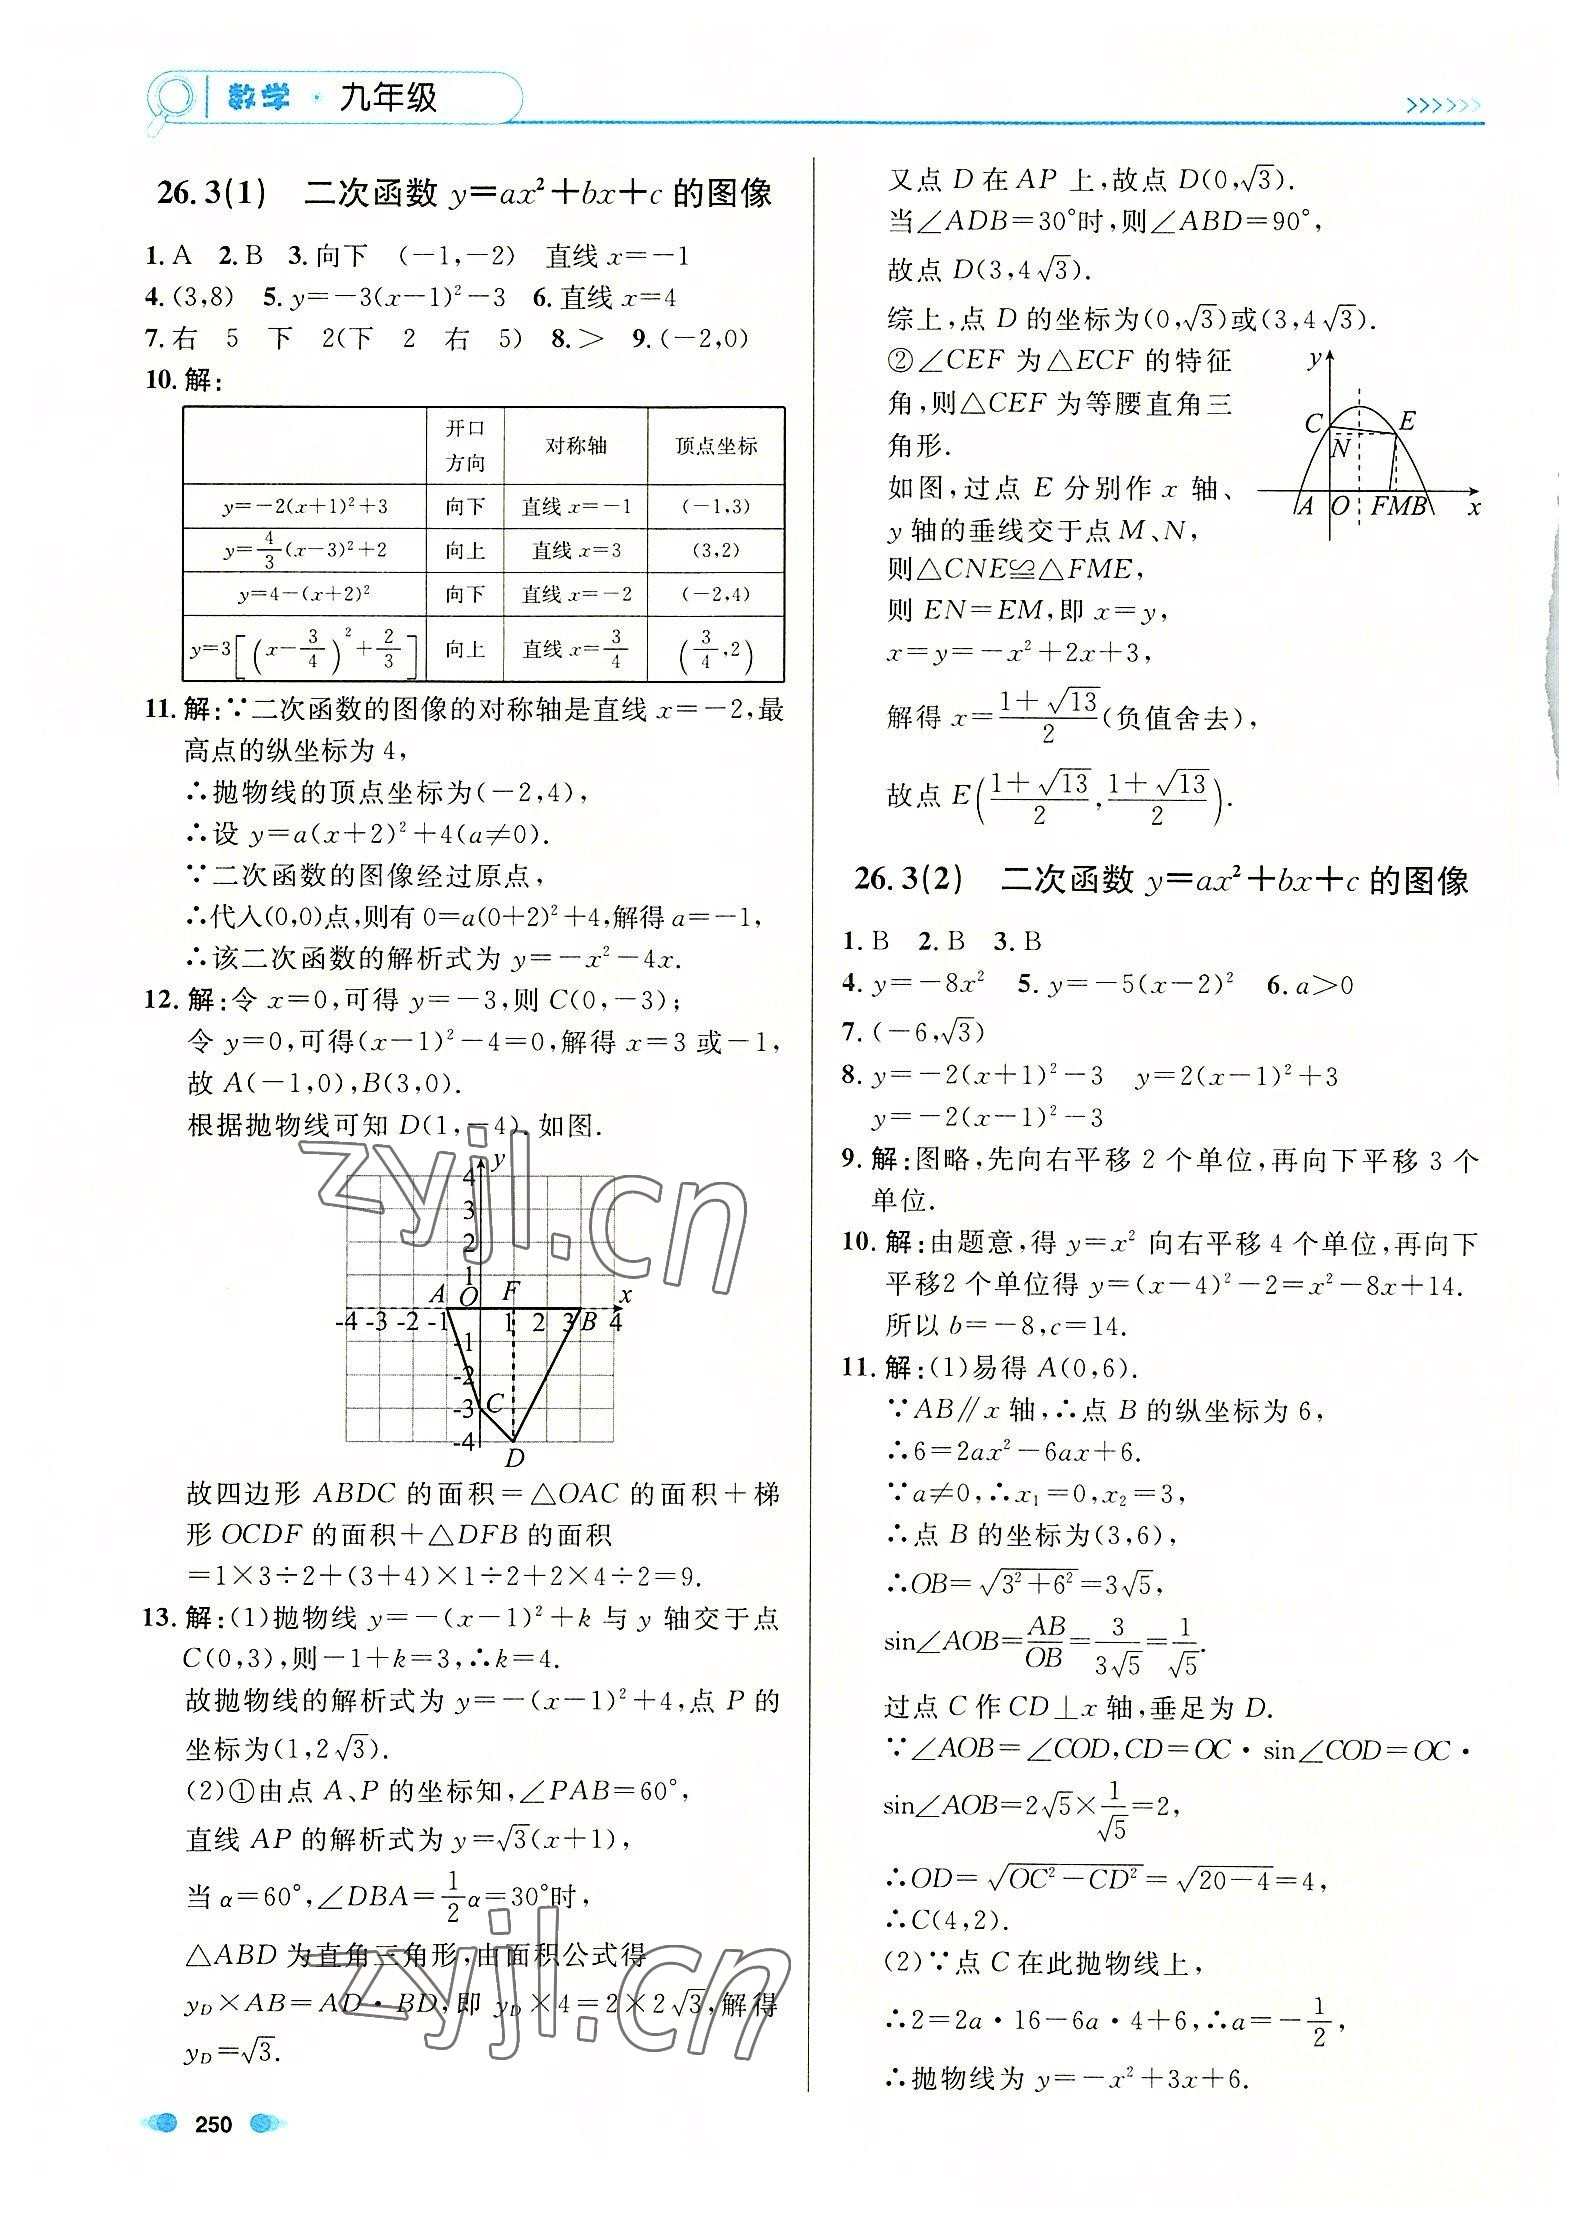 数学·九年级
26.3(1) 二次函数 y=ax²+bx+c 的图像
1.A 2.B 3.向下 (-1,-2) 直线 x=-1
4.(3,8) 5.y=-3(x-1)²-3 6.直线 x=4
7.右 5 下 2(下 2 右 5) 8.> 9.(-2,0)
10.解:
开口方向 对称轴 顶点坐标
y=-2(x+1)²+3 向下 直线 x=-1 (-1,3)
y=4/3(x-3)²+2 向上 直线 x=3 (3,2)
y=4-(x+2)² 向下 直线 x=-2 (-2,4)
y=3[(x-3/4)²+2/3] 向上 直线 x=3/4 (3/4,2)
11.解:∵二次函数的图像的对称轴是直线 x=-2,最
高点的纵坐标为 4,
∴抛物线的顶点坐标为(-2,4),
∴设 y=a(x+2)²+4(a≠0).
∵二次函数的图像经过原点,
∴代入(0,0)点,则有 0=a(0+2)²+4,解得 a=-1,
∴该二次函数的解析式为 y=-x²-4x.
12.解:令 x=0,可得 y=-3,则 C(0,-3);
令 y=0,可得(x-1)²-4=0,解得 x=3 或-1,
故 A(-1,0),B(3,0).
根据抛物线可知 D(1,-4).如图.
y
4
3
2
1
A O F x
-4 -3 -2 -1 1 2 3 B 4
-1
-2
-3 C
-4
D
故四边形 ABDC 的面积=△OAC 的面积+梯
形 OCDF 的面积+△DFB 的面积
=1×3÷2+(3+4)×1÷2+2×4÷2=9.
13.解:(1)抛物线 y=-(x-1)²+k 与 y 轴交于点
C(0,3),则-1+k=3,∴k=4.
故抛物线的解析式为 y=-(x-1)²+4,点 P 的
坐标为(1,2√3).
(2)①由点 A、P 的坐标知,∠PAB=60°,
直线 AP 的解析式为 y=√3(x+1),
当 α=60°,∠DBA=1/2α=30°时,
△ABD 为直角三角形,由面积公式得
y_D×AB=AD·BD,即 y_D×4=2×2√3,解得
y_D=√3.
又点 D 在 AP 上,故点 D(0,√3).
当∠ADB=30°时,则∠ABD=90°,
故点 D(3,4√3).
综上,点 D 的坐标为(0,√3)或(3,4√3).
②∠CEF 为△ECF 的特征
角,则△CEF 为等腰直角三
角形.
如图,过点 E 分别作 x 轴、
y 轴的垂线交于点 M、N,
则△CNE≌△FME,
则 EN=EM,即 x=y,
x=y=-x²+2x+3,
解得 x=(1+√13)/2(负值舍去),
故点 E((1+√13)/2,(1+√13)/2).
y
C E
N
A O F M B x
26.3(2) 二次函数 y=ax²+bx+c 的图像
1.B 2.B 3.B
4.y=-8x² 5.y=-5(x-2)² 6.a>0
7.(-6,√3)
8.y=-2(x+1)²-3 y=2(x-1)²+3
y=-2(x-1)²-3
9.解:图略,先向右平移 2 个单位,再向下平移 3 个
单位.
10.解:由题意,得 y=x² 向右平移 4 个单位,再向下
平移2 个单位得 y=(x-4)²-2=x²-8x+14.
所以 b=-8,c=14.
11.解:(1)易得 A(0,6).
∵AB∥x 轴,∴点 B 的纵坐标为 6,
∴6=2ax²-6ax+6.
∵a≠0,∴x₁=0,x₂=3,
∴点 B 的坐标为(3,6),
∴OB=√(3²+6²)=3√5,
sin∠AOB=AB/OB=3/(3√5)=1/√5.
过点 C 作 CD⊥x 轴,垂足为 D.
∵∠AOB=∠COD,CD=OC·sin∠COD=OC·
sin∠AOB=2√5×1/√5=2,
∴OD=√(OC²-CD²)=√(20-4)=4,
∴C(4,2).
(2)∵点 C 在此抛物线上,
∴2=2a·16-6a·4+6,∴a=-1/2,
∴抛物线为 y=-x²+3x+6.
250
zyjl.cn
zyjl.cn